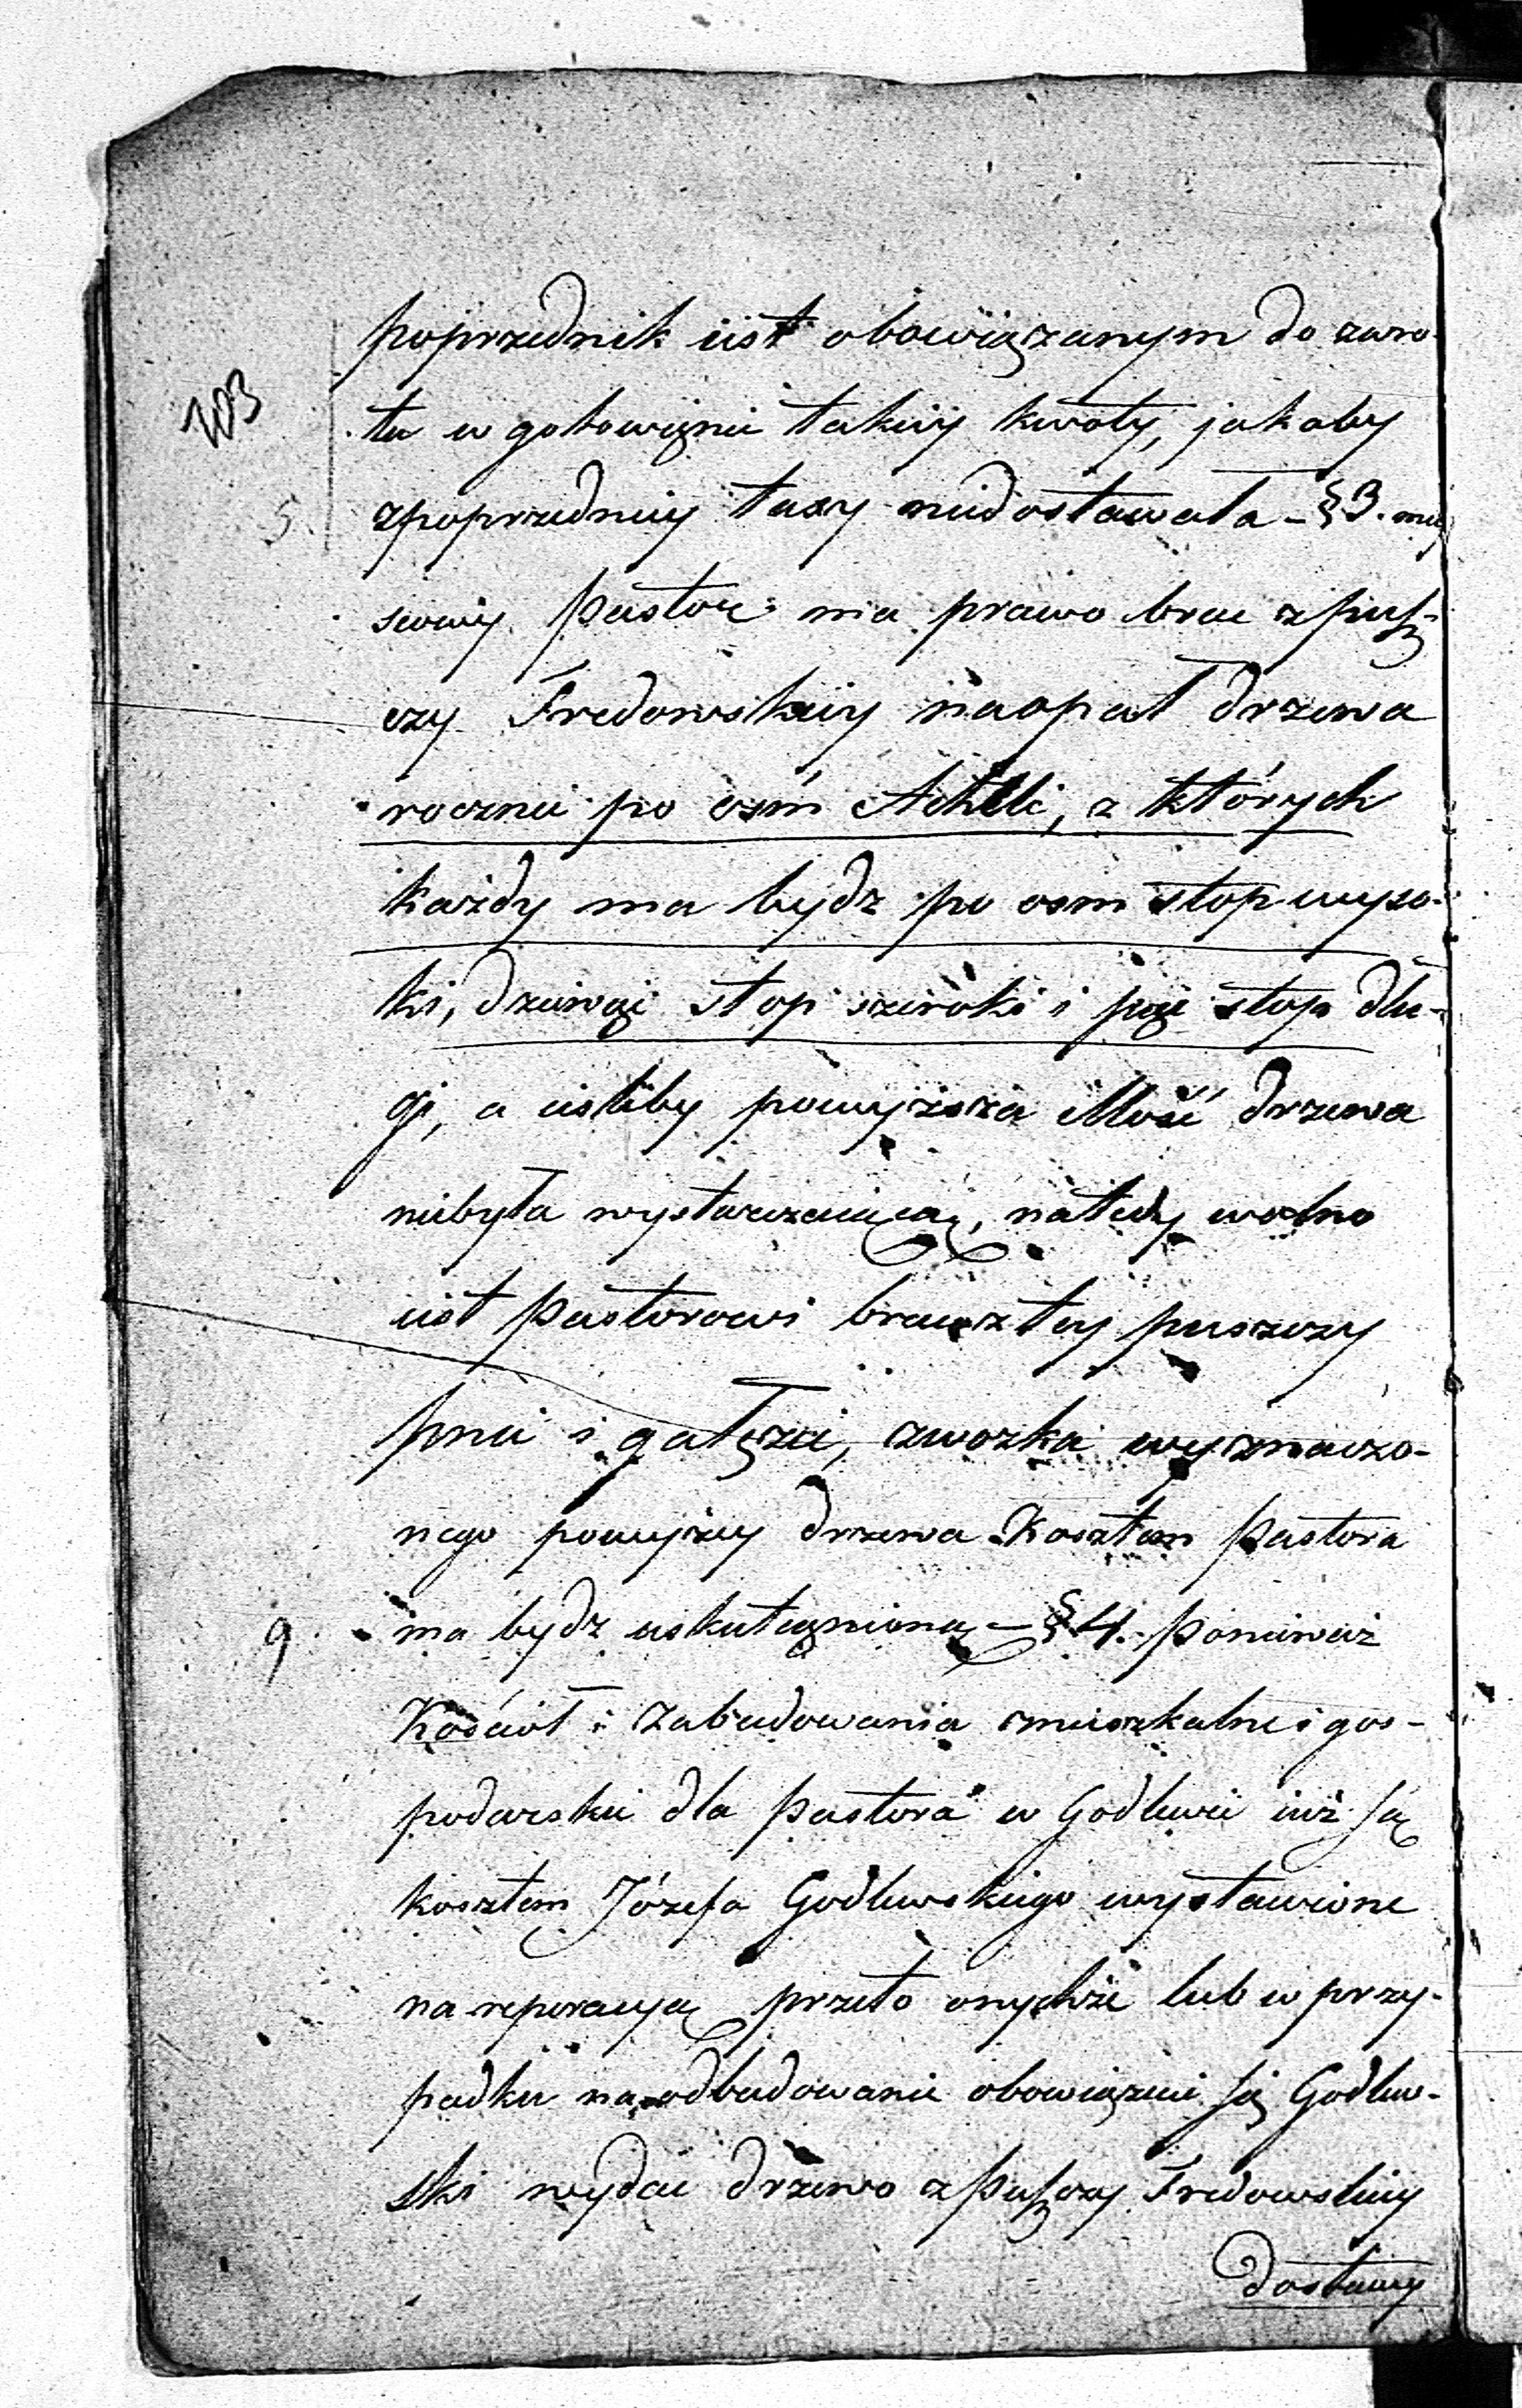 poprzednik iest obowiązanym do zwro-
103
tu w gotowiznie takiéy kwoty, jakaby
5.
zpoprzedniéy taxy niedostawała – § 3. miéy
scowy Pastor ma prawo brać z Pusz-
czy Fredowskiéy na opał drzewa
rocznie po ośm Achteli, z których
każdy ma bydź po ośm stop wyso-
ki, dziewięć stop szeroki i pięć stop dłu-
gi, a iesliby powyższa ilłość drzewa
niebyła wystarczaiącą, natedy wolno
iest Pastorowi brać z téy puszczy
pnie i gałęzie, zwozka wyznaczo-
nego powyżéy drzewa Kosztem Pastora
9 ma bydź uskutecznioną – § 4. Ponieważ
Kościół i Zabudowania mieszkalne i gos-
podarskie dla Pastora w Godlewie iuż są
kosztem Józefa Godlewskiego wystawione
na reperacyą przeto onychże lub w przy-
padku na odbudowanie obowiązuie się Godlew-
ski wydać drzewo z Puszczy Fredowskiéy
dostawy